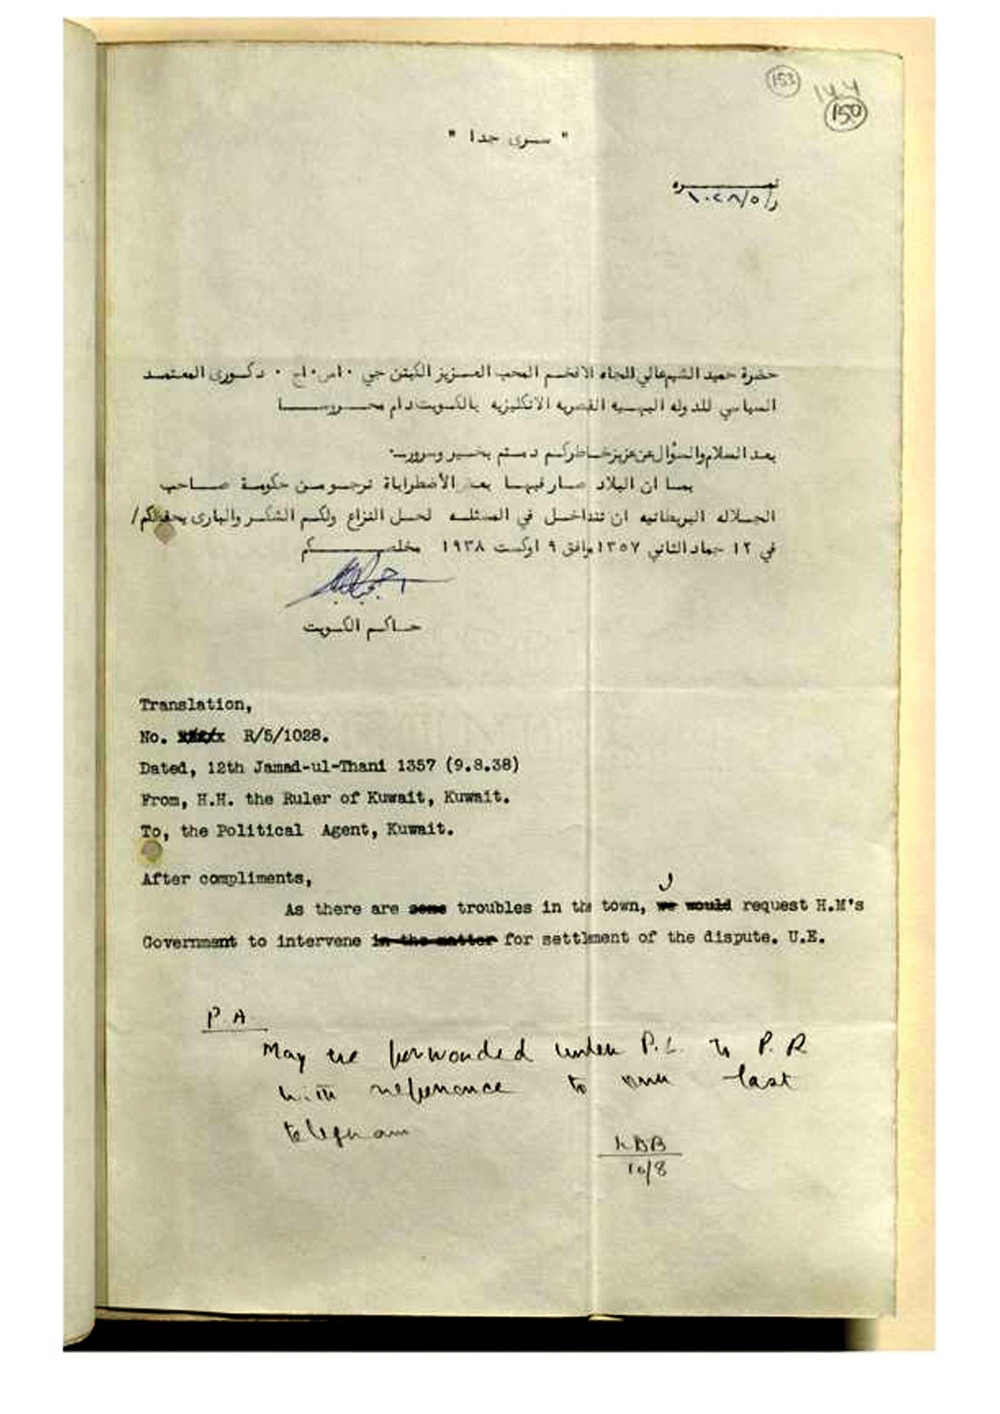 153
144
150
" سـرى جدا "
نمـــــره
ر/٥/١٠٢٨
حضرة حميد الشيم عالي الجاه الافخم المحب العـزيز الكبتن جي ٠ اس ٠ اج ٠ دكـورى المعتمـد
السياسي للدوله البهيـه القصريه الانكليزيه بالكويت دام محـروسـا
بعد السلام والسؤال عن عزيز خـاطركم دمتم بخـير وسرور ـ ٠
بما ان البلاد صار فيهـا بعض الأضطراباة نرجـو مـن حكومـة صـاحب
الجـلاله البريطانيه ان تتداخـل في المسئلـه لحل النزاع ولكم الشكـر والبارى يحفظكم /
في ١٢ جماد الثاني ١٣٥٧ موافق ٩ اوكست ١٩٣٨ مخلصـــــكم
حـاكـم الكـويت
Translation,
No. R/5/1028.
Dated, 12th Jamad-ul-Thani 1357 (9.8.38)
From, H.H. the Ruler of Kuwait, Kuwait.
To, the Political Agent, Kuwait.
After compliments,
As there are some troubles in the town, we would request H.M's
Government to intervene in the matter for settlment of the dispute. U.E.
P A
May be forwarded under P.L. to P.R
with reference to our last
telegram
KBB
10/8